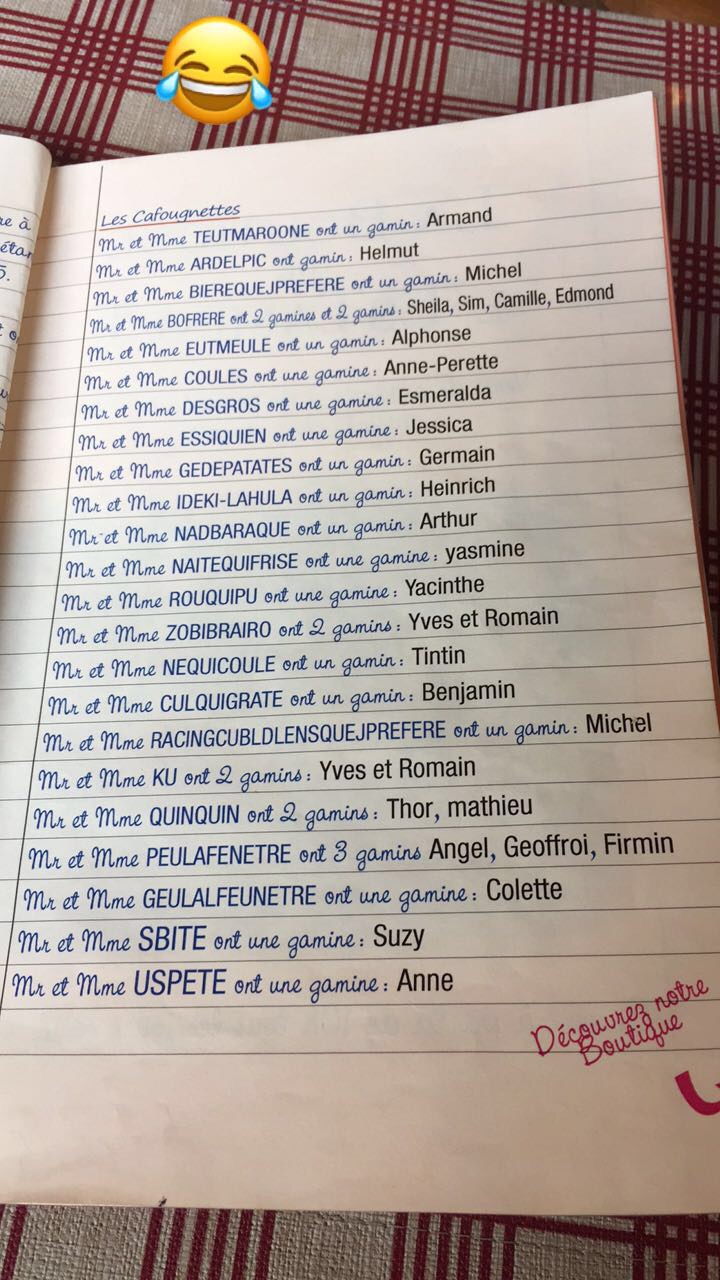 Les Cafougnettes
Mr et Mme TEUTMAROONE ont un gamin : Armand
Mr et Mme ARDELPIC ont gamin : Helmut
Mr et Mme BIEREQUEJPREFERE ont un gamin : Michel
Mr et Mme BOFRERE ont 2 gamines et 2 gamins : Sheila, Sim, Camille, Edmond
Mr et Mme EUTMEULE ont un gamin : Alphonse
Mr et Mme COULES ont une gamine : Anne-Perette
Mr et Mme DESGROS ont une gamine : Esmeralda
Mr et Mme ESSIQUIEN ont une gamine : Jessica
Mr et Mme GEDEPATATES ont un gamin : Germain
Mr et Mme IDEKI-LAHULA ont un gamin : Heinrich
Mr et Mme NADBARAQUE ont un gamin : Arthur
Mr et Mme NAITEQUIFRISE ont une gamine : yasmine
Mr et Mme ROUQUIPU ont une gamine : Yacinthe
Mr et Mme ZOBIBRAIRO ont 2 gamins : Yves et Romain
Mr et Mme NEQUICOULE ont un gamin : Tintin
Mr et Mme CULQUIGRATE ont un gamin : Benjamin
Mr et Mme RACINGCUBLDLENSQUEJPREFERE ont un gamin : Michel
Mr et Mme KU ont 2 gamins : Yves et Romain
Mr et Mme QUINQUIN ont 2 gamins : Thor, mathieu
Mr et Mme PEULAFENETRE ont 3 gamins Angel, Geoffroi, Firmin
Mr et Mme GEULALFEUNETRE ont une gamine : Colette
Mr et Mme SBITE ont une gamine : Suzy
Mr et Mme USPETE ont une gamine : Anne
Découvrez notre
Boutique